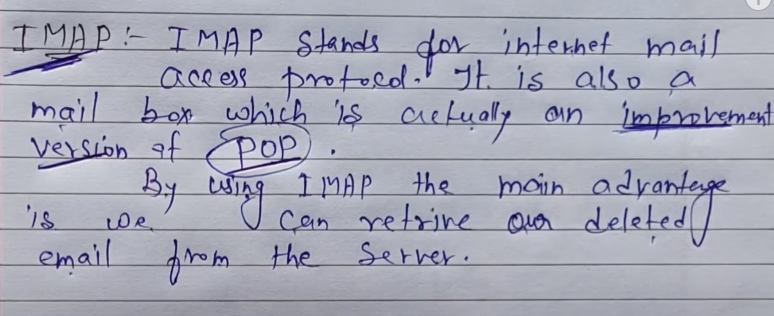 IMAP :- IMAP stands for internet mail
access protocol. It is also a
mail box which is actually an improvement
version of POP .
By using IMAP the main advantage
is we can retrive our deleted
email from the server.